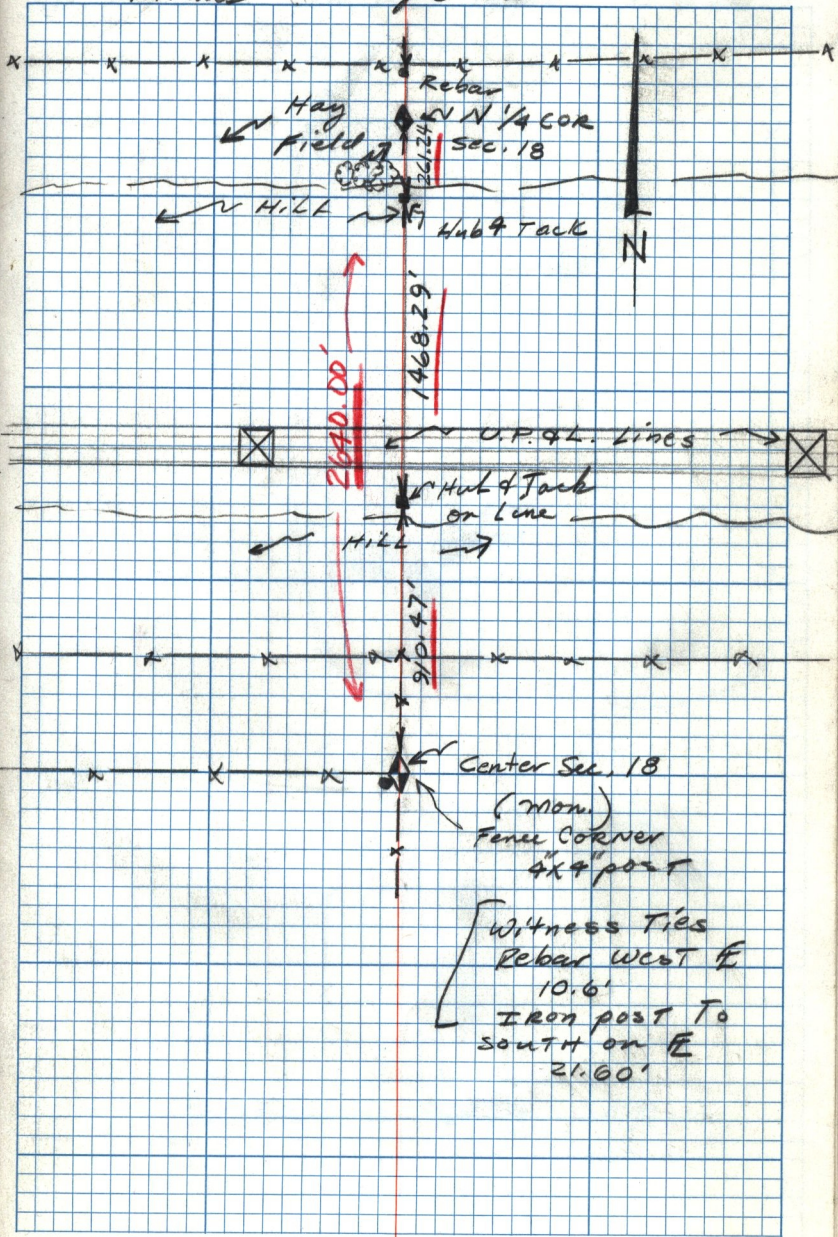 Rebar
N 1/4 COR
Sec. 18
Hay
Field
261.24
HILL
Hub & Tack
N
1468.29'
2640.00'
U.P.&L. Lines
Hub & Tack
on Line
HILL
910.47'
Center Sec. 18
(Mon.)
Fence CORNER
4"x4" post
Witness Ties
Rebar West FL
10.6'
IRon post To
south on FL
21.60'